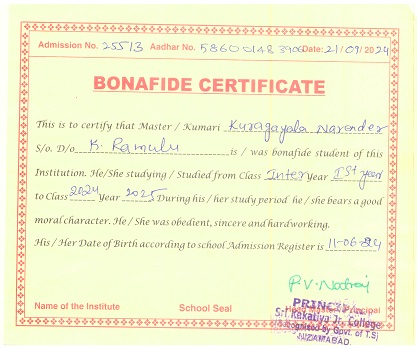 Admission No. 25513 Aadhar No. 5860 0148 3906 Date: 21/09/2024
BONAFIDE CERTIFICATE
This is to certify that Master / Kumari Kuragayala Narender
S/o. D/o. K. Ramulu is / was bonafide student of this
Institution. He/She studying / Studied from Class Inter Year Ist year
to Class 2024 Year 2025 During his / her study period he / she bears a good
moral character. He / She was obedient, sincere and hardworking.
His / Her Date of Birth according to school Admission Register is 11-06-
P.V. Natraj
Name of the Institute School Seal Head Master / Principal
PRINCIPAL
Kakatiya Jr. College
Recognised by Govt. of T.S)
NIZAMABAD.